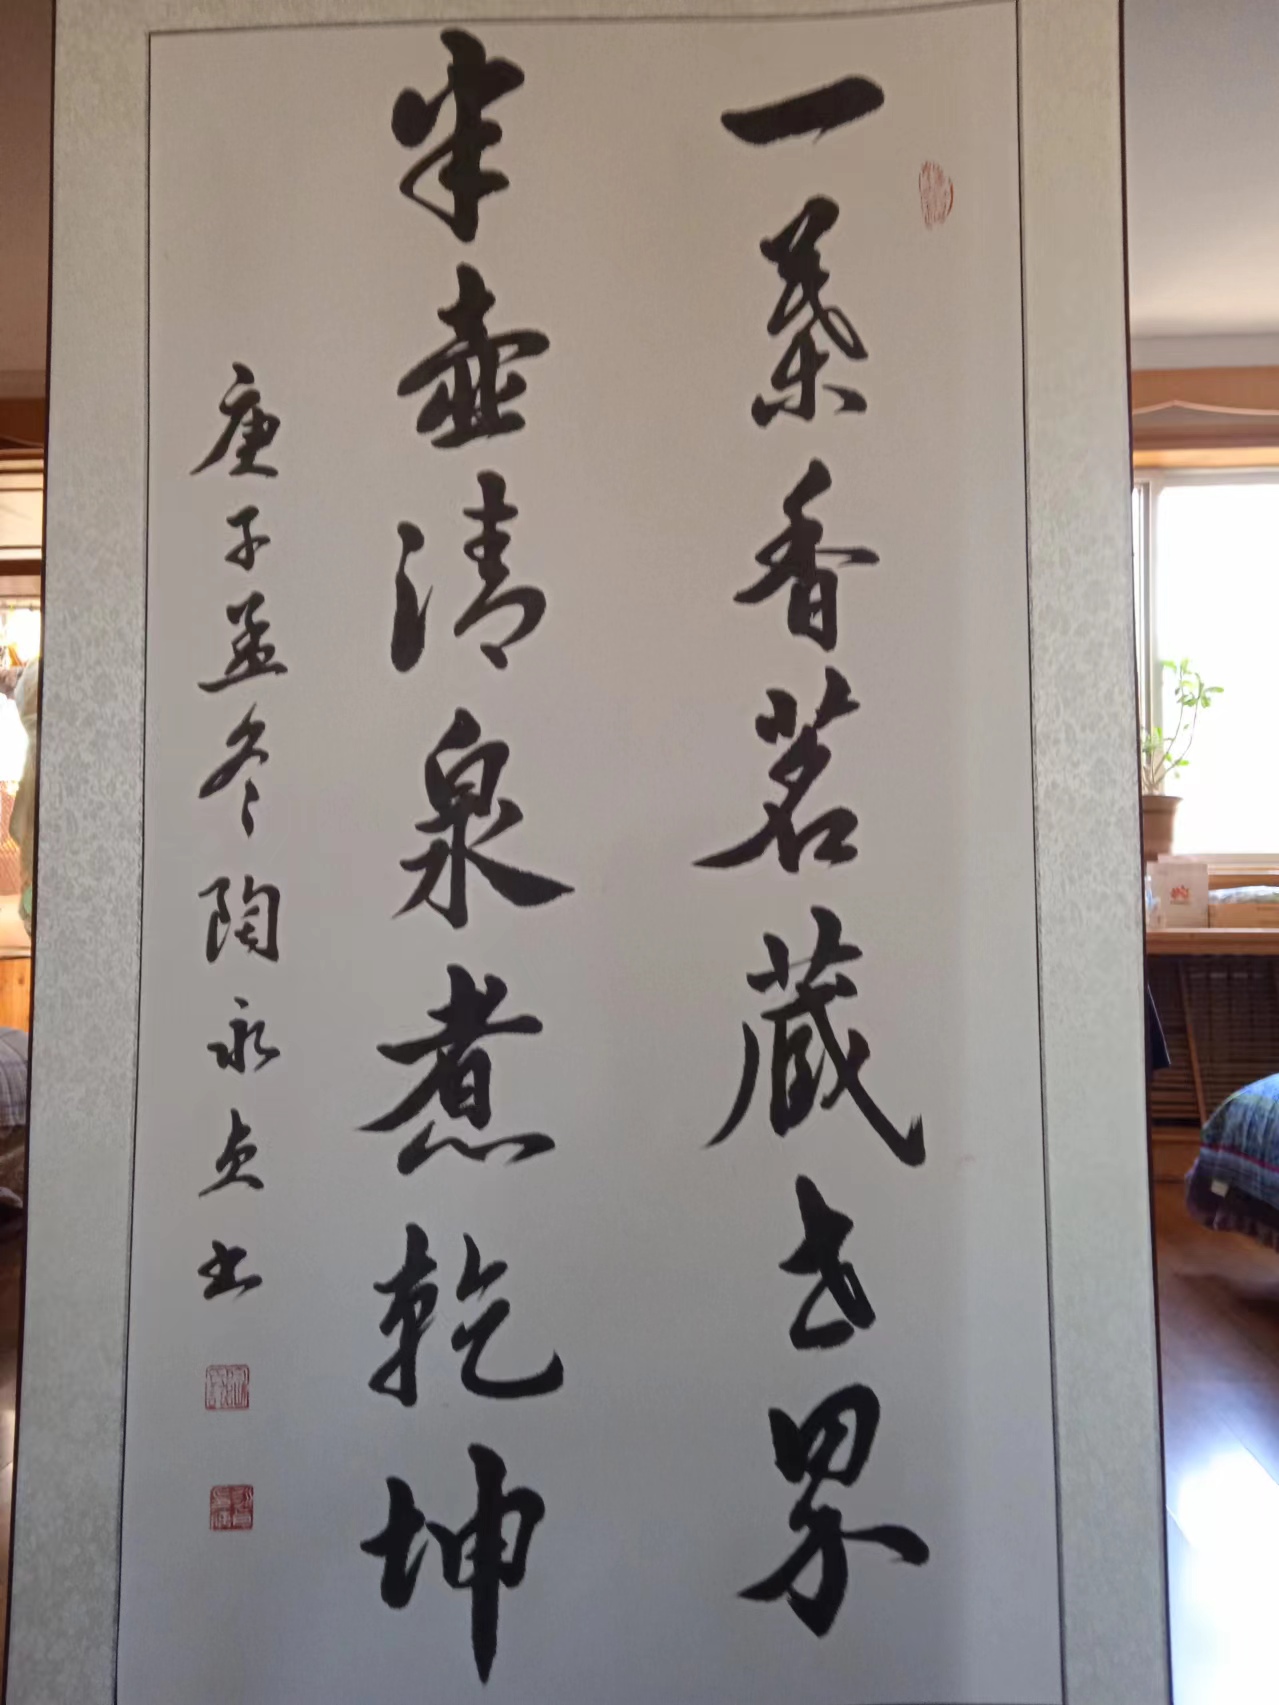 一葉香茗蔵世界
半壺清泉煮乾坤
庚子孟冬陶永貞书